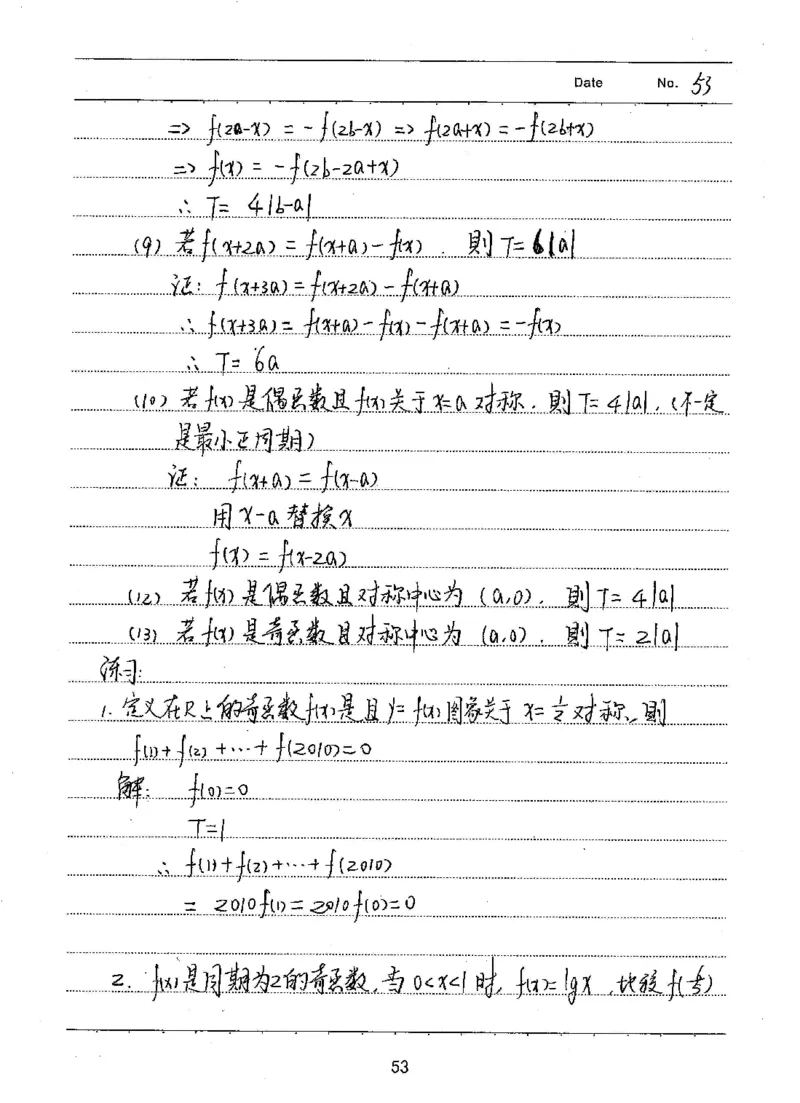 Date No. 53
=> f(2a-x) = -f(2b-x) => f(2a+x) = -f(2b+x)
=> f(x) = -f(2b-2a+x)
∴ T= 4|b-a|
(9) 若f(x+2a) = f(x+a)-f(x). 則T=6|a|
证: f(x+3a)=f(x+2a)-f(x+a)
∴ f(x+3a)= f(x+a)-f(x)-f(x+a)=-f(x)
∴ T= 6a
(10) 若f(x)是偶函数且f(x)关于x=a对称. 則T=4|a|. (不一定
是最小正周期)
证: f(x+a)=f(x-a)
用x-a替换x
f(x)=f(x-2a)
(12) 若f(x)是偶函数且对称中心为 (a,0). 則T=4|a|
(13) 若f(x)是奇函数且对称中心为 (a,0). 則T=2|a|
练习:
1. 定义在R上的奇函数f(x)是且y=f(x)图象关于x=½对称, 則
f(1)+f(2)+⋯+f(2010)=0
解: f(0)=0
T=1
∴ f(1)+f(2)+⋯+f(2010)
= 2010f(1)=2010f(0)=0
2. f(x)是周期为2的奇函数, 当0<x<1时, f(x)=lgx, 比较f(6/5)
53